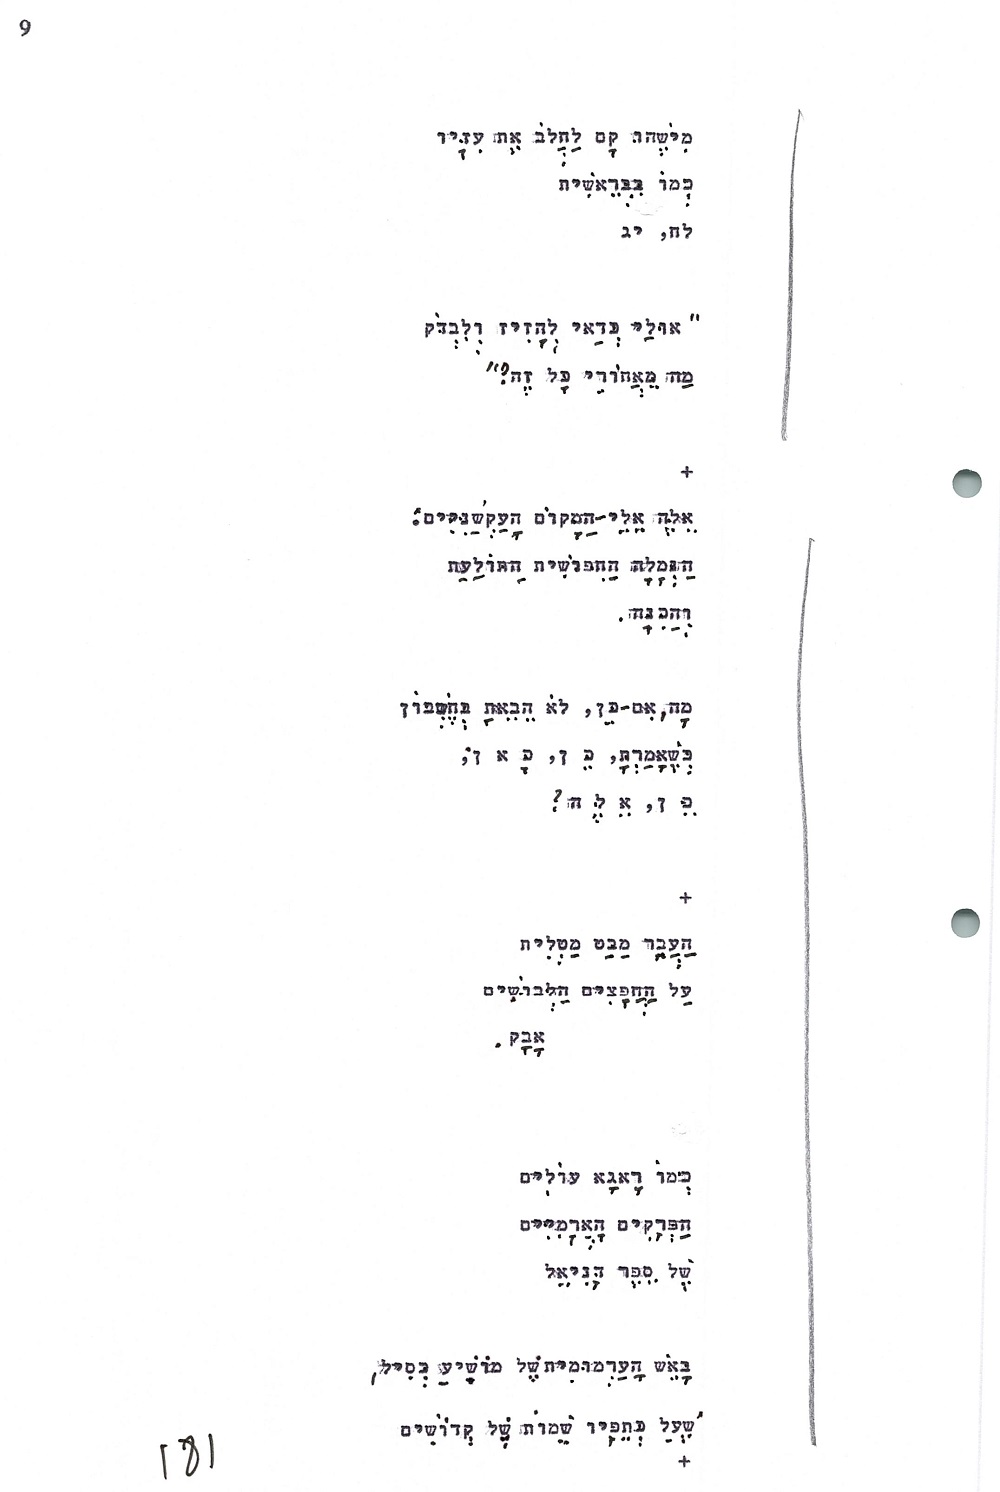 9
מִישֶׁהוּ קָם לַחֲלֹב אֶת עִזָּיו
כְּמוֹ בִּבְּרֵאשִׁית
לח, יג
"אוּלַי כְּדַאי לְהָזִיז וְלִבְדֹּק
מַה מֵּאֲחוֹרֵי כָּל זֶה?"
+
אֵלֶּה אֵלֵי-הַמָּקוֹם הָעַקְשָׁנִיִּים:
הַנְּמָלָה הַחִפּוּשִׁית הַתּוֹלַעַת
וְהַכִּנָּה.
מָה, אִם-כֵּן, לֹא הֵבֵאתָ בְּחֶשְׁבּוֹן
כְּשֶׁאָמַרְתָּ, כֵּ ן, כָּ א ן,
כֵּ ן, אֵ לֶּ ה?
+
הַעֲבֵר מַבַּט מַטְלִית
עַל הַחֲפָצִים הַלְּבוּשִׁים
אָבָק.
כְּמוֹ רָאגָא עוֹלִים
הַפְּרָקִים הָאֲרָמִיִּים
שֶׁל סֵפֶר דָּנִיֵּאל
בָּאֵשׁ הָעַרְמוּמִית שֶׁל מוֹשִׁיעַ כְּסִיל,
שֶׁעַל כְּתֵפָיו שֵׁמוֹת שֶׁל קְדוֹשִׁים
+
181